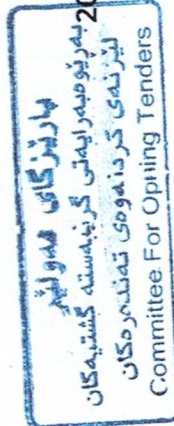 پارێزگای هەولێر
بەڕێوەبەرایەتی گرێبەستە گشتیەکان
لێژنەی کردنەوەی تەندەرەکان
Committee For Opniing Tenders
20